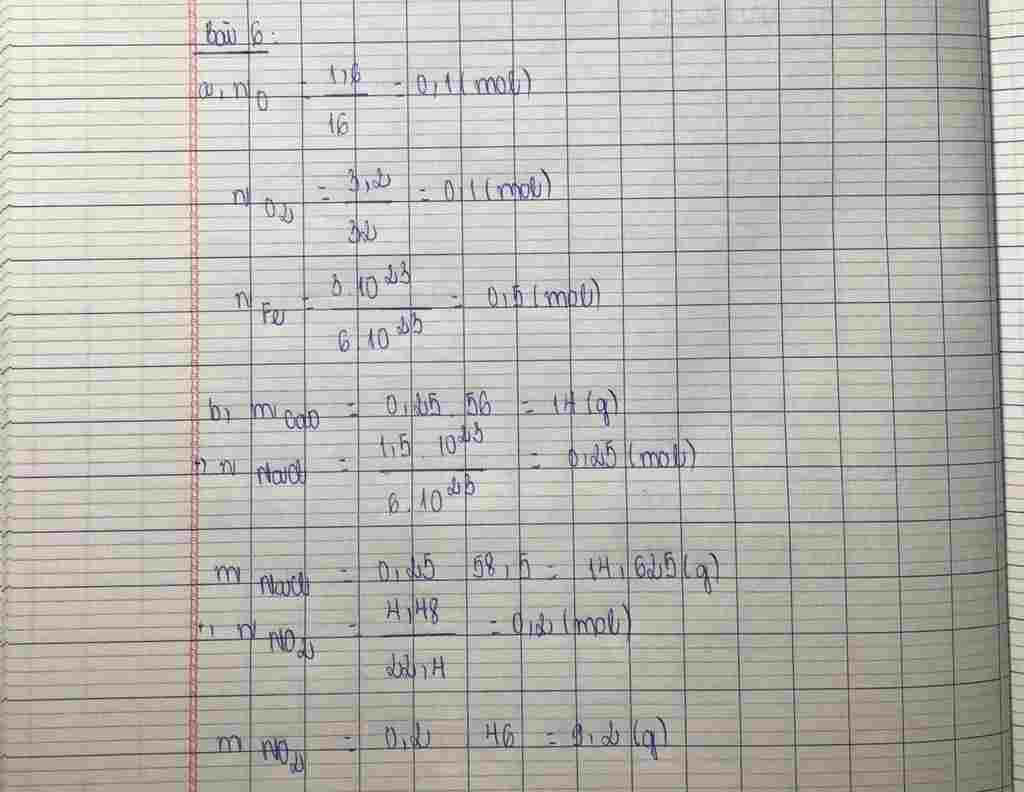 Bài 6:
a, n O = 1,6 / 16 = 0,1 (mol)
n O2 = 3,2 / 32 = 0,1 (mol)
n Fe = 3.10^23 / 6.10^23 = 0,5 (mol)
b, m CaO = 0,25 . 56 = 14 (g)
+, n NaCl = 1,5 . 10^23 / 6.10^23 = 0,25 (mol)
m NaCl = 0,25 . 58,5 = 14,625 (g)
+, n NO2 = 4,48 / 22,4 = 0,2 (mol)
m NO2 = 0,2 . 46 = 9,2 (g)